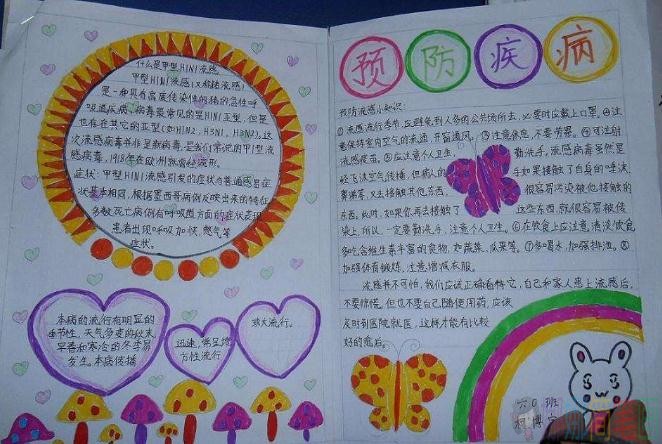 什么是甲型H1N1流感
甲型H1N1流感(又称猪流感)
是一种具有高度传染性的猪的急性呼
吸道疾病,病毒最常见的是H1N1亚型,但是
也存在其它的亚型(如H1N2,H3N1,H3N2),这
次流感病毒并非是新病毒,是我们常说的甲1型流
感病毒,1918年在欧洲就
症状:甲型H1N1流感引发的症状与普通感冒症
状基本相同,根据墨西哥病例反映出来的特征
多数死亡病例有呼吸道方面的症状表现
患者出现呼吸加快,喘气等
症状。
本病的流行有明显的
季节性,天气多变的秋末,
早春和寒冷的冬季易
发生。本病传播
迅速,常呈地
方性流行
或大流行。
预防疾病
预防流感小知识:
①流感流行季节,应避免到人多的公共场所去,必要时应戴上口罩。②注
意保持室内空气的流通,开窗通风。③注意休息,不要劳累。④可注射
流感疫苗。⑤应注意个人卫生,勤洗手,流感病毒虽然是
经飞沫空气传播,但病人的手如果接触了自身的唾沫、
鼻涕等,又去接触其他东西,很容易污染被他接触的
东西。此时,如果你再去接触了这些东西,就很容易被传
染上。所以,一定要勤洗手,注意个人卫生。⑥在饮食上应注意,清淡饮食
多吃含维生素丰富的食物,如蔬菜、瓜果等。⑦多喝水,加强排泄。⑧
加强体育锻炼,注意增减衣服。
流感并不可怕,我们应该正确看待它,自己和家人患上流感后,
不要惊慌。但也不要自己随便用药,应该
及时到医院就医,这样才能有比较
好的治愈。
六(1)班